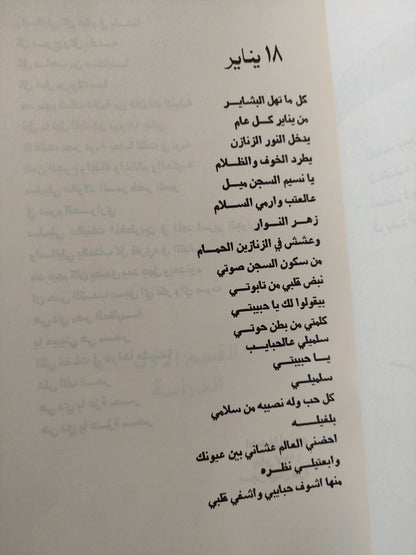 ١٨ يناير
كل ما تهل البشاير
من يناير كل عام
يدخل النور الزنازن
يطرد الخوف والظلام
يا نسيم السجن ميل
عالعتب وارمي السلام
زهر النوار
وعشش في الزنازين الحمام
من سكون السجن صوتي
نبض قلبي من تابوتي
بيقولوا لك يا حبيبتي
كلمتي من بطن حوتي
سلميلي عالحبايب
يا حبيبتي
سلميلي
كل حب وله نصيبه من سلامي
بلغيله
احضني العالم عشاني بين عيونك
وابعتيلي نظره
منها اشوف حبايبي واشفي قلبي